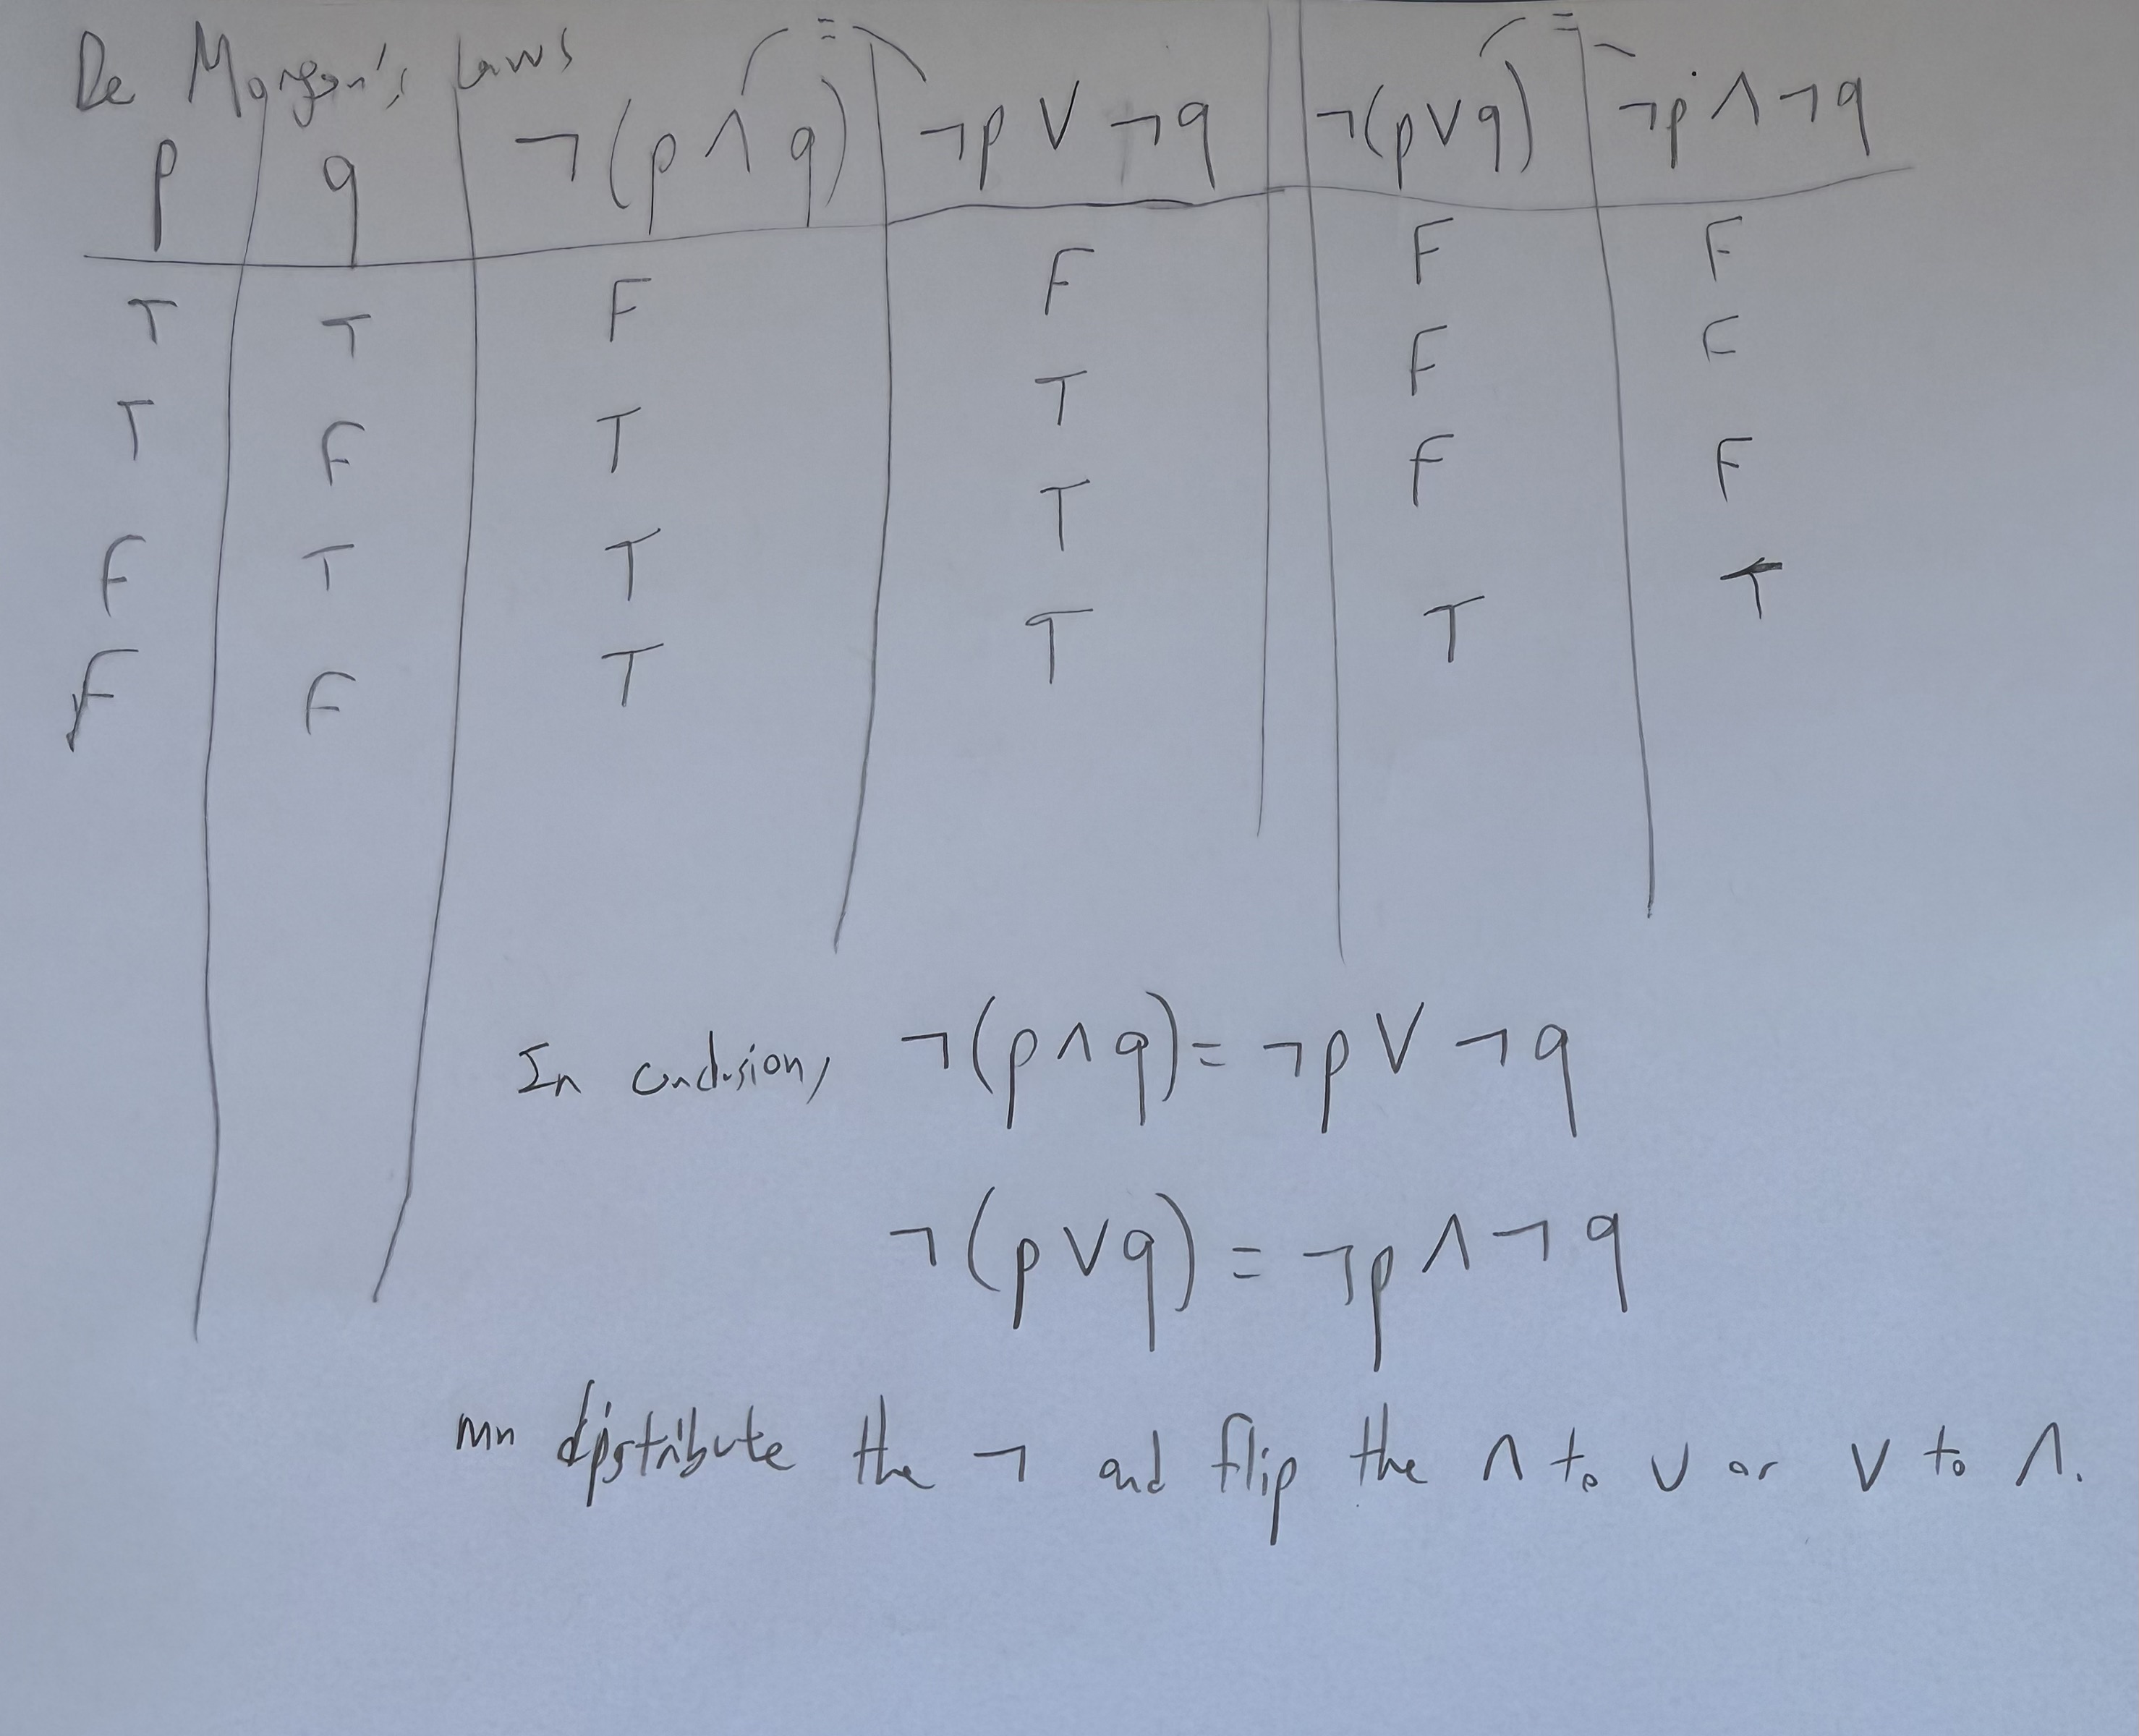 De Morgan's Laws
= =
p q ¬(p ∧ q) ¬p ∨ ¬q ¬(p∨q) ¬p ∧ ¬q
T T F F F F
T F T T F F
F T T T F F
F F T T T T
In conclusion, ¬(p∧q) = ¬p ∨ ¬q
¬(p∨q) = ¬p ∧ ¬q
distribute the ¬ and flip the ∧ to ∨ or ∨ to ∧.